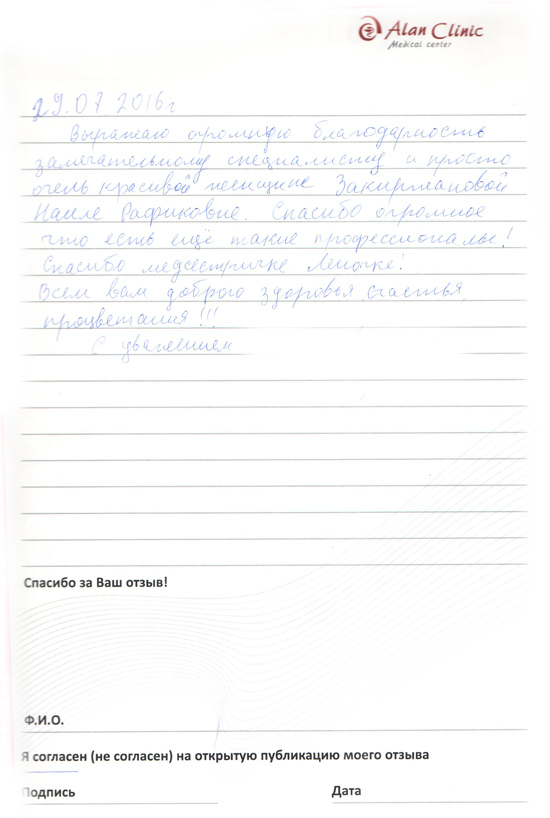 Alan Clinic
Medical center
29.07.2016г
Выражаю огромную благодарность
замечательному специалисту и просто
очень красивой женщине Закиржановой
Наиле Рафиковне. Спасибо огромное
что есть ещё такие профессионалы!
Спасибо медсестричке Леночке!
Всем вам доброго здоровья, счастья,
процветания!!!
С уважением
Спасибо за Ваш отзыв!
Ф.И.О.
Я согласен (не согласен) на открытую публикацию моего отзыва
Подпись Дата